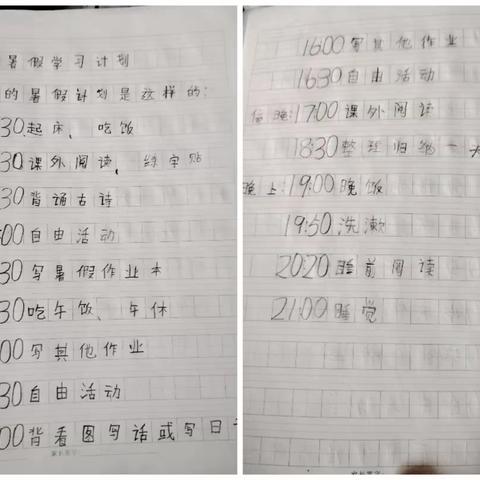 暑假学习计划
的暑假计划是这样的:
30起床、吃饭
30课外阅读、练字贴
30背诵古诗
00自由活动
30写暑假作业本
30吃午饭、午休
00写其他作业
30自由活动
00背看图写话或写日
家长签字
16:00写其他作业
16:30自由活动
傍晚:17:00课外阅读
18:30整理归纳一天
晚上:19:00晚饭
19:50洗漱
20:20睡前阅读
21:00睡觉
家长签字